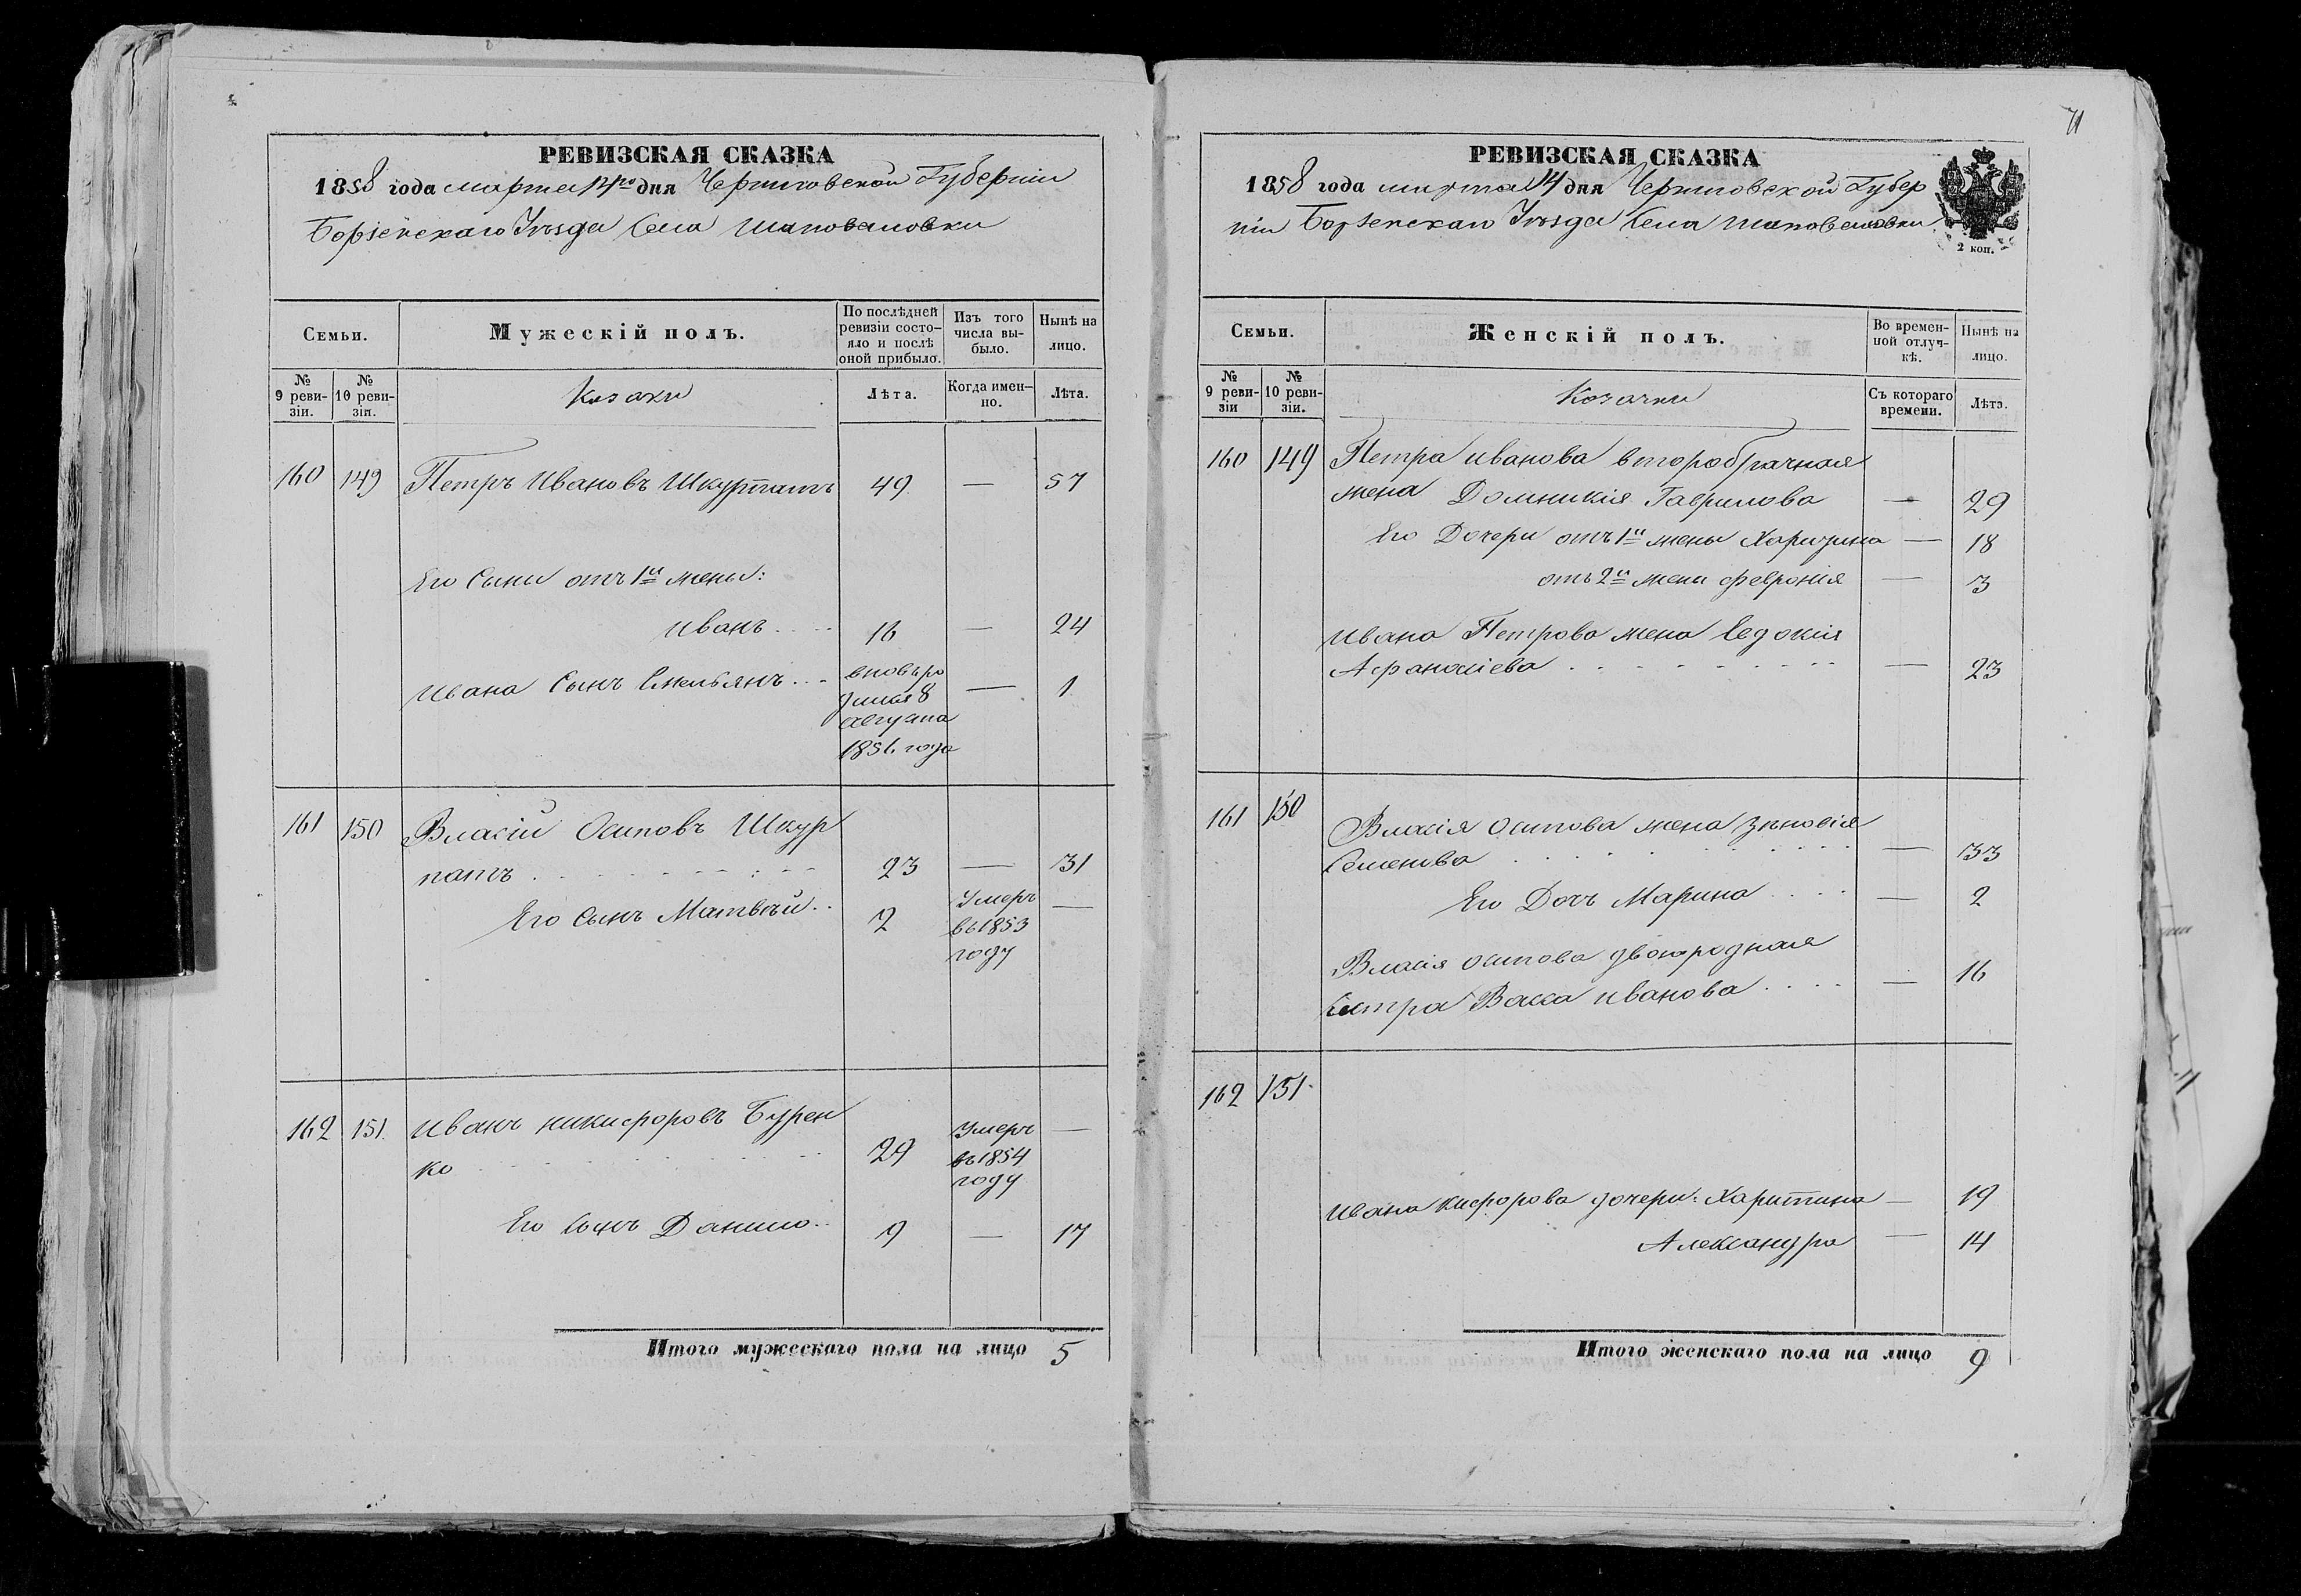 РЕВИЗСКАЯ СКАЗКА
1858 года марта 14го дня Черниговской Губерніи
Борзенскаго Уѣзда Села Шаповаловки
Семьи.
Мужескій полъ.
По послѣдней ревизіи состояло и послѣ оной прибыло.
Изъ того числа выбыло.
Нынѣ на лицо.
№ 9 ревизіи.
№ 10 ревизіи.
Козаки
Лѣта.
Когда именно.
Лѣта.
160 149 Петръ Ивановъ Шкурпатъ 49 — 57
Его Сыни отъ 1й жены:
Иванъ 16 — 24
Ивана Сынъ Емельянъ вновьро
дился 8 — 1
августа
1856 года
161 150 Власій Осиповъ Шкур
патъ 23 — 31
Его Сынъ Матвѣй 2 Умеръ —
въ 1853
году
162 151. Иванъ Никифоровъ Бурен
ко 29 Умеръ —
въ 1854
году
Его Сынъ Данило 9 — 17
Итого мужескаго пола на лицо 5
71
РЕВИЗСКАЯ СКАЗКА
1858 года марта 14 дня Черниговской Губер
ніи Борзенскаго Уѣзда Села Шаповаловки
2 коп.
Семьи.
Женскій полъ.
Во временной отлучкѣ.
Нынѣ на лицо.
№ 9 ревизіи
№ 10 ревизіи.
Козачки
Съ котораго времени.
Лѣта.
160 149 Петра Иванова второбрачная
жена Домникія Гаврилова — 29
Его Дочери отъ 1й жены Харитина — 18
отъ 2й жени Февронія — 3
Ивана Петрова жена Евдокія
Афанасіева — 23
161 150 Власія Осипова жена Зѣновія
Семенова — 33
Его Дочъ Марина — 2
Власія Осипова двоюродная
Сестра Васса Иванова — 16
162 151.
Ивана Кифорова дочери: Харитина — 19
Александра — 14
Итого женскаго пола на лицо 9